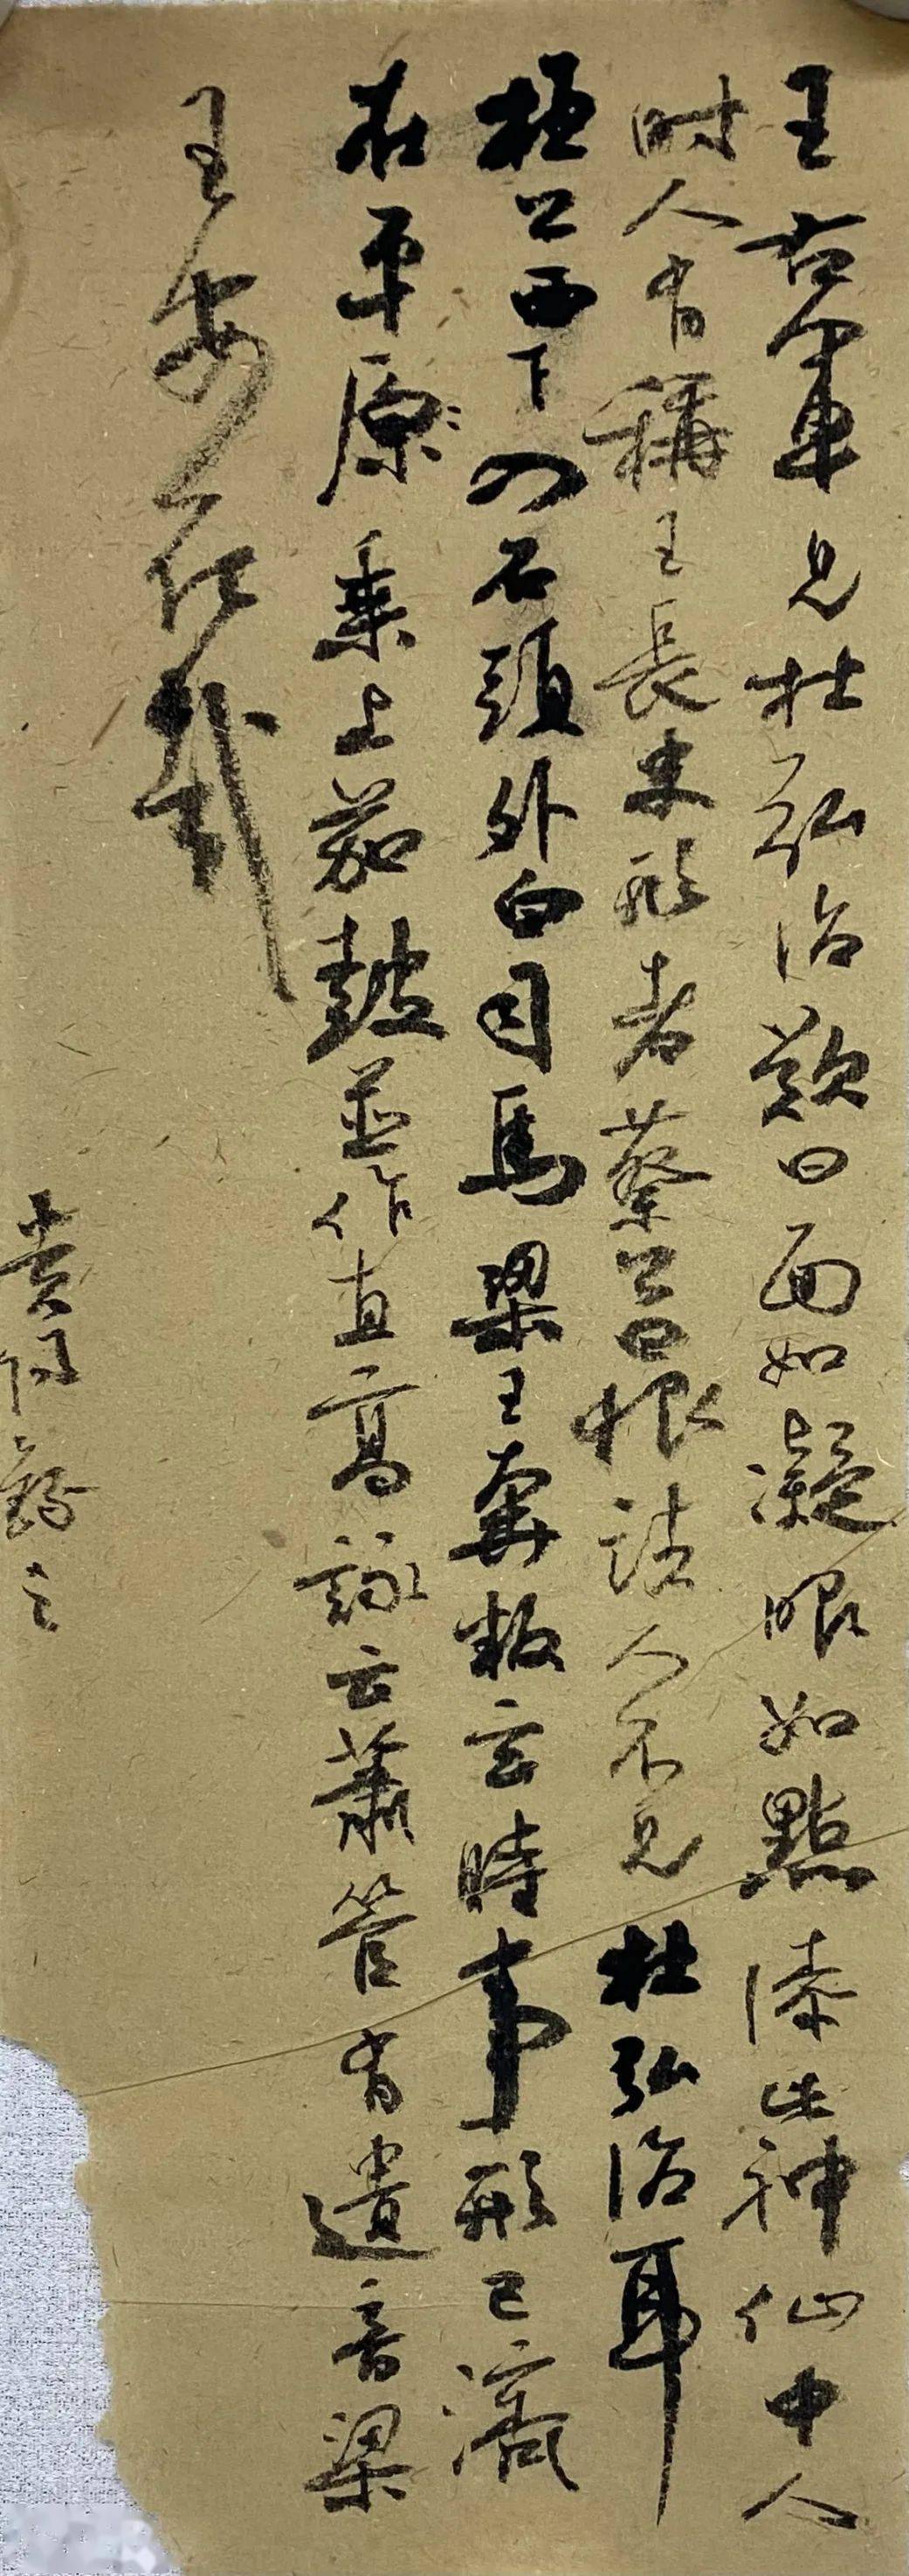 王右軍見杜弘治歎曰面如凝眼如點漆此神仙中人
时人有稱王長史形者蔡公曰恨諸人不見杜弘治耳
桓公西下入石頭外白司馬梁王奔叛玄時事形已濟
在平原乘上笳鼓並作直高詠云蕭管有遺音梁
王安在哉